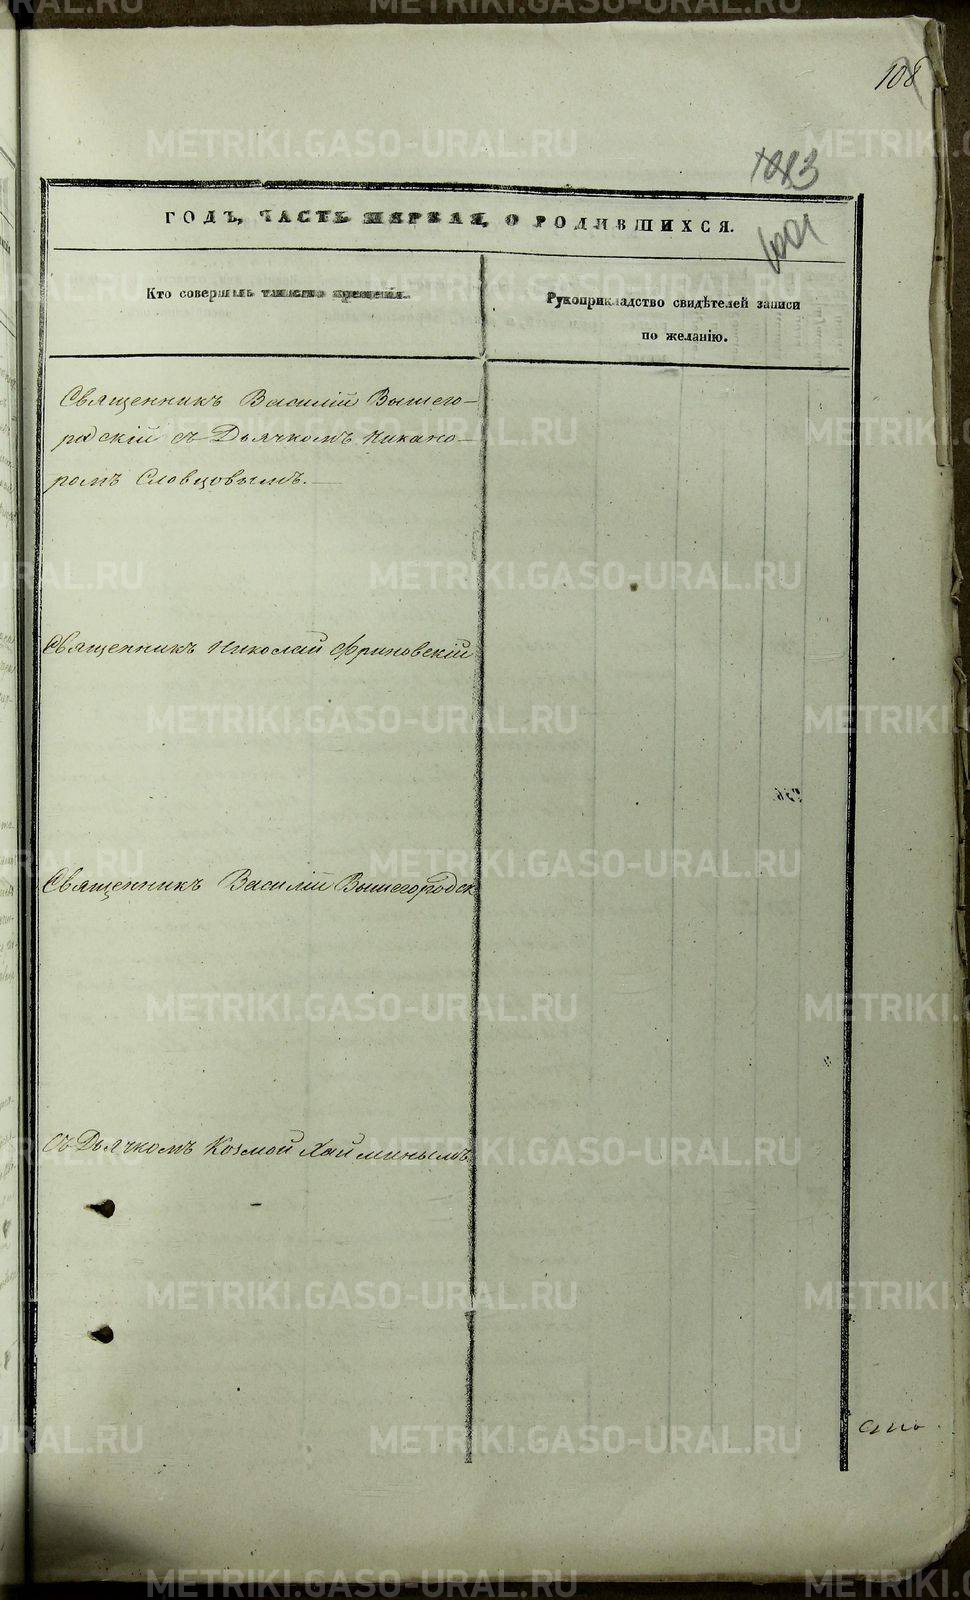 108
1083
1001
ГОДЪ, ЧАСТЬ ПЕРВАЯ, О РОДИВШИХСЯ.
Кто совершалъ таинство крещенія.
Рукоприкладство свидѣтелей записи
по желанію.
Священникъ Василій Вышего-
родскій съ Дьячкомъ Никано-
ромъ Словцовымъ.
Священникъ Николай Фриновскій
Священникъ Василій Вышегородск
Съ Дьячкомъ Козмой Хайминымъ
METRIKI.GASO-URAL.RU